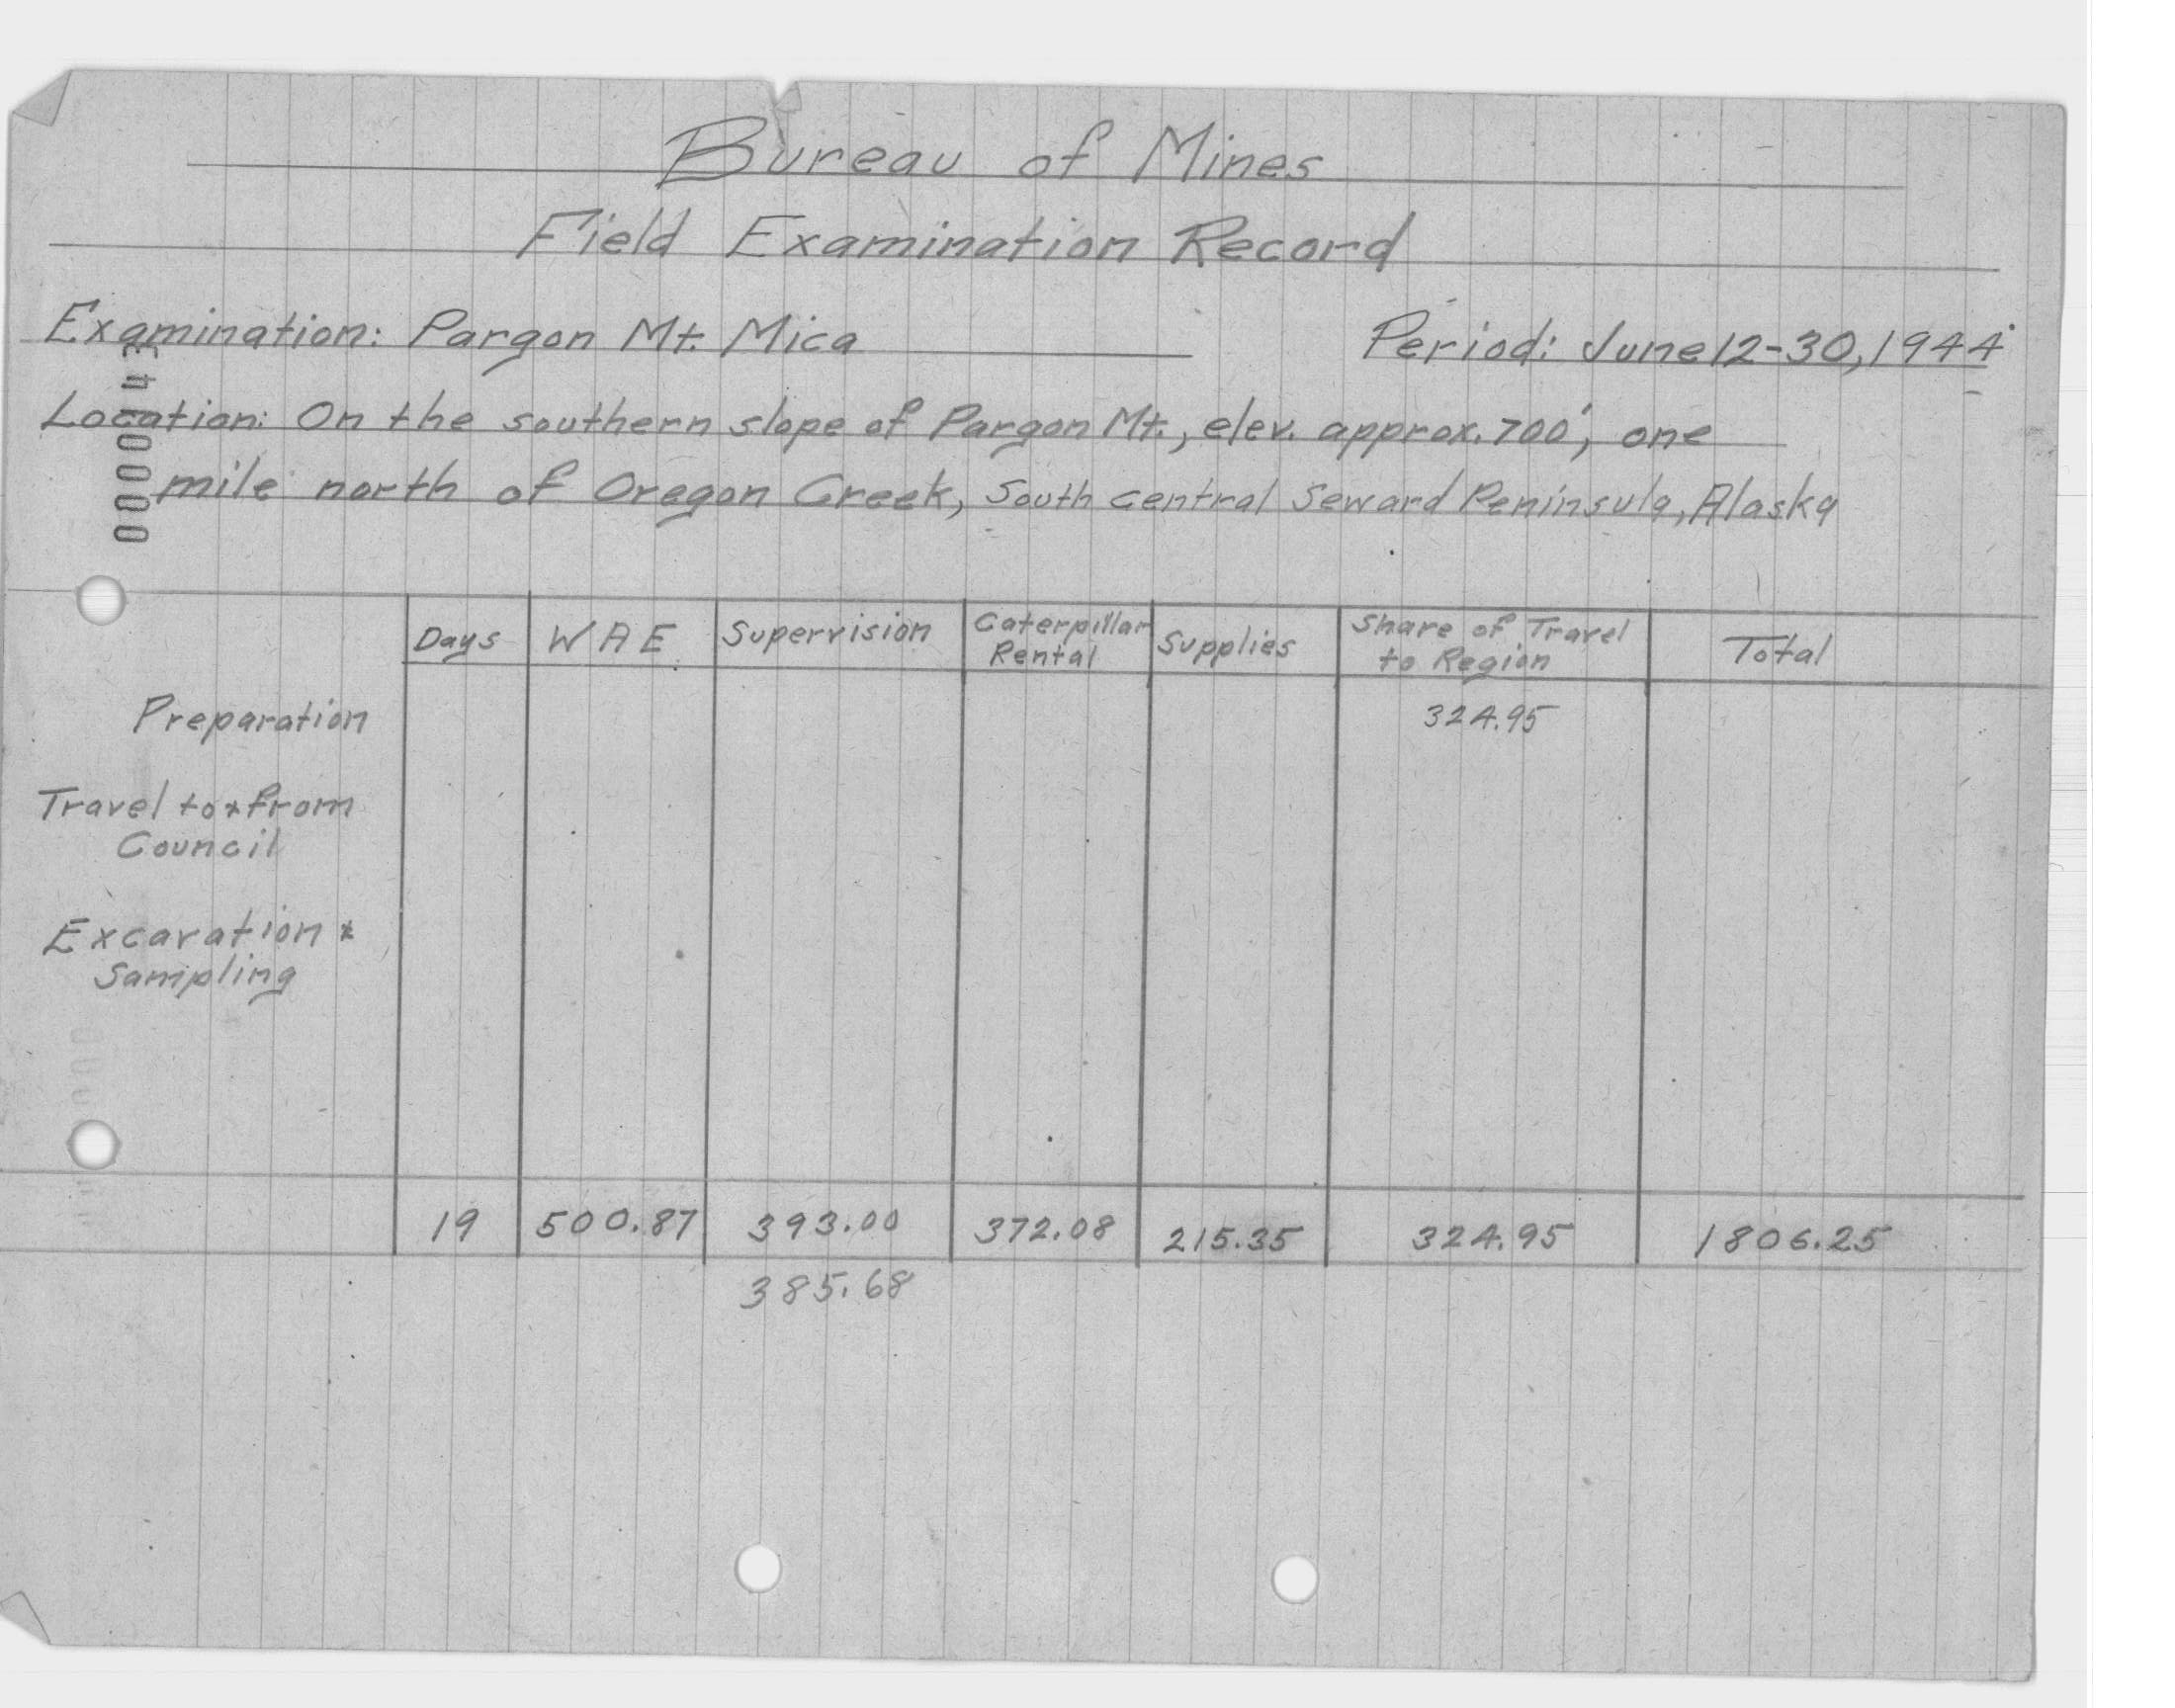 Bureau of Mines
Field Examination Record
Examination: Pargon Mt. Mica Period: June 12-30, 1944
Location: On the southern slope of Pargon Mt., elev. approx. 700', one
mile north of Oregon Creek, South central Seward Peninsula, Alaska
Days WAE Supervision Caterpillar Rental Supplies Share of Travel to Region Total
Preparation 324.95
Travel to & from
Council
Excavation &
Sampling
19 500.87 393.00 372.08 215.35 324.95 1806.25
385.68